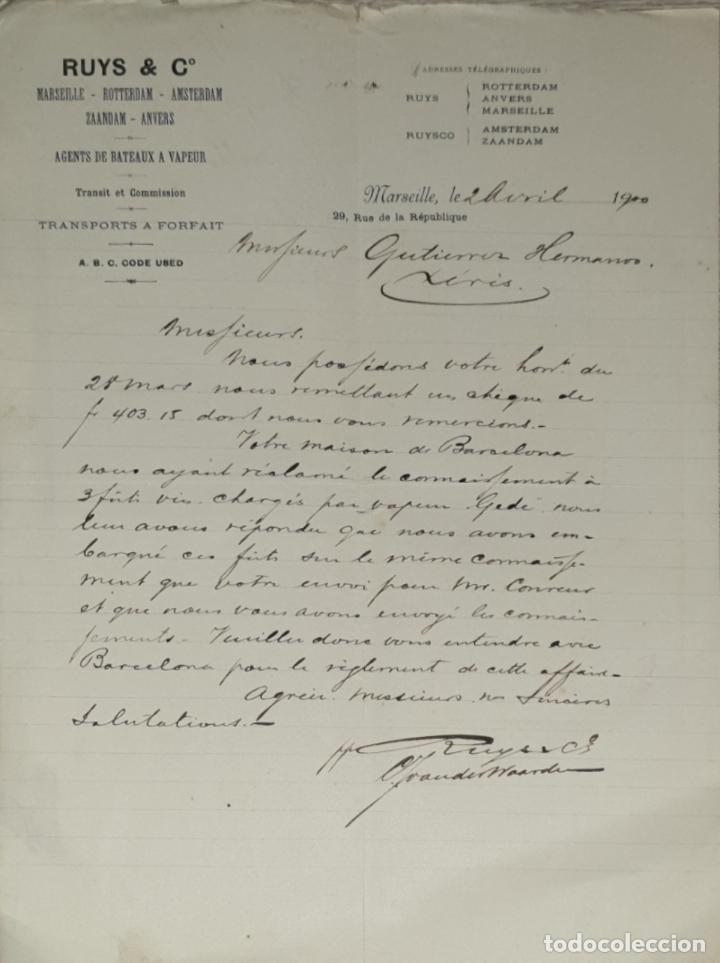 RUYS & Cº
MARSEILLE - ROTTERDAM - AMSTERDAM
ZAANDAM - ANVERS
AGENTS DE BATEAUX A VAPEUR
Transit et Commission
TRANSPORTS A FORFAIT
A. B. C. CODE USED
ADRESSES TÉLÉGRAPHIQUES:
RUYS
ROTTERDAM
ANVERS
MARSEILLE
RUYSCO
AMSTERDAM
ZAANDAM
Marseille, le 2 Avril 1900
29, Rue de la République
Messieurs Gutierrez Hermanos.
Xérès.
Messieurs.
Nous possédons votre honr. du
28 mars nous remettant un chèque de
fr 403.15 dont nous vous remercions.-
Votre maison de Barcelona
nous ayant réclamé le connaissement à
3 fûts vin chargés par vapeur Gedé nous
leur avons répondu que nous avons em-
barqué ces fûts sur le même connaisse-
ment que votre envoi pour Mr. Conreur
et que nous vous avons envoyé les connais-
sements.- Veuillez donc vous entendre avec
Barcelona pour le règlement de cette affaire-
Agréez Messieurs nos sincères
Salutations.-
pp Ruys & Cº
van der Waarden
todocoleccion
todocoleccion.net